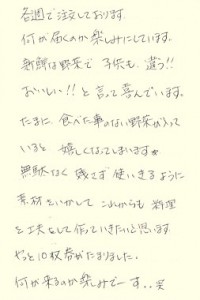 各週で注文しております
何が届くのか楽しみにしています。
新鮮な野菜で 子供も、違う!!
おいしい!! と言って喜んでいます。
たまに 食べた事のない野菜が入って
いると 嬉しくなってしまいます
無駄なく 残さず 使いきるように
素材をいかして これからも 料理
を工夫して作っていきたいと思います
やっと10枚券がたまりました。
何が来るのか楽しみでーす..笑